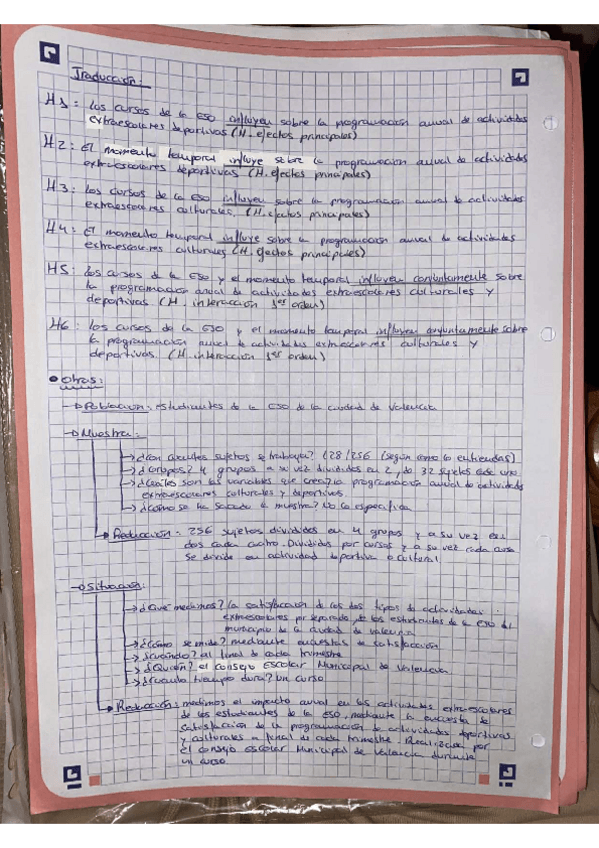 Traducción:
H1: Los cursos de la ESO influyen sobre la programación anual de actividades
extraescolares deportivas (H. efectos principales)
H2: El momento temporal influye sobre la programación anual de actividades
extraescolares deportivas (H. efectos principales)
H3: Los cursos de la ESO influyen sobre la programación anual de actividades
extraescolares culturales. (H. efectos principales)
H4: El momento temporal influye sobre la programación anual de actividades
extraescolares culturales (H. efectos principales)
H5: Los cursos de la ESO y el momento temporal influyen conjuntamente sobre
la programación anual de actividades extraescolares culturales y
deportivas (H. interacción 1er orden)
H6: Los cursos de la ESO y el momento temporal influyen conjuntamente sobre
la programación anual de actividades extraescolares culturales y
deportivas. (H. interacción 1er orden)
Otros:
→ Población: estudiantes de la ESO de la ciudad de Valencia
→ Muestra:
→ ¿Con cuántos sujetos se trabaja? 128/256 (según como lo entiendas)
→ ¿Grupos? 4 grupos a su vez divididos en 2, de 32 sujetos cada uno
→ ¿Cuáles son las variables que crea? la programación anual de actividades
extraescolares culturales y deportivas.
→ ¿Cómo se ha sacado la muestra? No lo especifica
→ Redacción: 256 sujetos divididos en 4 grupos y a su vez en
dos cada cuatro. Divididos por cursos y a su vez cada curso
se divide en actividad deportiva o cultural
→ Situación:
→ ¿Qué medimos? La satisfacción de los dos tipos de actividades
extraescolares por separado, de los estudiantes de la ESO del
municipio de la ciudad de Valencia
→ ¿Cómo se mide? mediante encuestas de satisfacción
→ ¿Cuándo? al final de cada trimestre
→ ¿Quién? el Consejo Escolar Municipal de Valencia
→ ¿Cuánto tiempo dura? un curso
→ Redacción: medimos el impacto anual en las actividades extraescolares
de los estudiantes de la ESO, mediante la encuesta de
satisfacción de la programación de actividades deportivas
y culturales a final de cada trimestre. Realizada por
el consejo escolar Municipal de Valencia durante
un curso